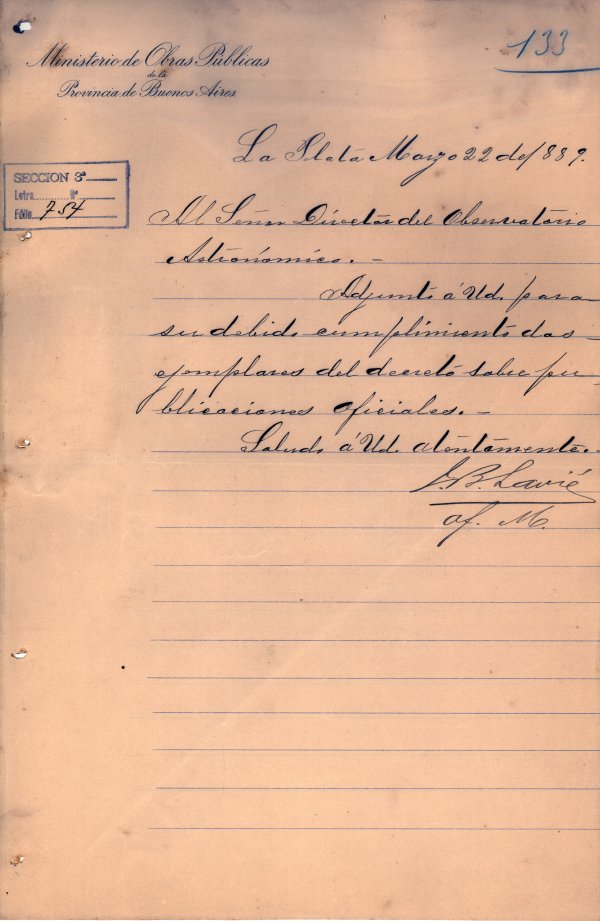 133
Ministerio de Obras Públicas
de la
Provincia de Buenos Aires
La Plata Marzo 22 de 1889.
SECCION 3ª
Letra Nº
Fólio 754
Al Señor Diréctor del Observatório
Astronómico. -
Adjunto á Ud. para
su debido cumplimiento dos
ejemplares del decreto sobre pu-
blicaciones oficiales. -
Saludo á Ud. atentamente. -
J. B. Lavié
of. M.